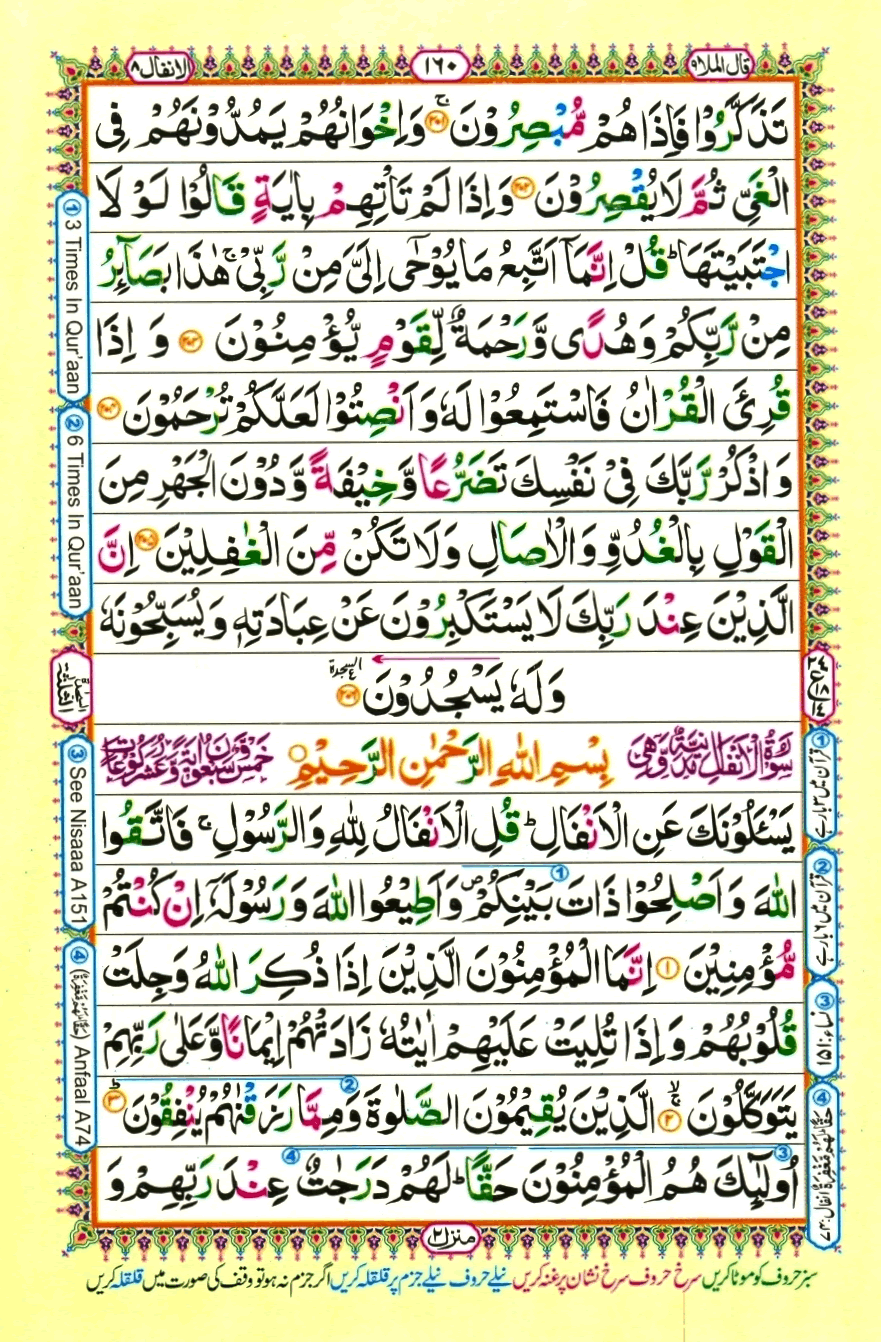 قال الملا ٩
١٦٠
لانفال ٨
تَذَكَّرُوْا فَاِذَا هُمْ مُّبْصِرُوْنَ ۚ ٢٠١ وَاِخْوَانُهُمْ يَمُدُّوْنَهُمْ فِى
الْغَىِّ ثُمَّ لَا يُقْصِرُوْنَ ٢٠٢ وَاِذَا لَمْ تَاْتِهِمْ بِاٰيَةٍ قَالُوْا لَوْ لَا
اجْتَبَيْتَهَا ؕ قُلْ اِنَّمَاۤ اَتَّبِعُ مَا يُوْحٰۤى اِلَىَّ مِنْ رَّبِّىْ ۚ هٰذَا بَصَآئِرُ
مِنْ رَّبِّكُمْ وَهُدًى وَّرَحْمَةٌ لِّقَوْمٍ يُّؤْمِنُوْنَ ٢٠٣ وَ اِذَا
قُرِئَ الْقُرْاٰنُ فَاسْتَمِعُوْا لَهٗ وَاَنْصِتُوْا لَعَلَّكُمْ تُرْحَمُوْنَ ٢٠٤
وَاذْكُرْ رَّبَّكَ فِىْ نَفْسِكَ تَضَرُّعًا وَّخِيْفَةً وَّدُوْنَ الْجَهْرِ مِنَ
الْقَوْلِ بِالْغُدُوِّ وَالْاٰصَالِ وَلَا تَكُنْ مِّنَ الْغٰفِلِيْنَ ٢٠٥ اِنَّ
الَّذِيْنَ عِنْدَ رَبِّكَ لَا يَسْتَكْبِرُوْنَ عَنْ عِبَادَتِهٖ وَيُسَبِّحُوْنَهٗ
وَلَهٗ يَسْجُدُوْنَ ٢٠٦ السجدة
سُوْرَةُ الْاَنْفَالِ مَدَنِيَّةٌ وَّهِىَ بِسْمِ اللهِ الرَّحْمٰنِ الرَّحِيْمِ خَمْسٌ وَّسَبْعُوْنَ اٰيَةً وَّعَشْرُ رُكُوْعَاتٍ
يَسْئَلُوْنَكَ عَنِ الْاَنْفَالِ ؕ قُلِ الْاَنْفَالُ لِلّٰهِ وَالرَّسُوْلِ ۚ فَاتَّقُوا
اللهَ وَاَصْلِحُوْا ذَاتَ بَيْنِكُمْ ۪ وَاَطِيْعُوا اللهَ وَرَسُوْلَهٗۤ اِنْ كُنْتُمْ
مُّؤْمِنِيْنَ ١ اِنَّمَا الْمُؤْمِنُوْنَ الَّذِيْنَ اِذَا ذُكِرَ اللهُ وَجِلَتْ
قُلُوْبُهُمْ وَاِذَا تُلِيَتْ عَلَيْهِمْ اٰيٰتُهٗ زَادَتْهُمْ اِيْمَانًا وَّعَلٰى رَبِّهِمْ
يَتَوَكَّلُوْنَ ۙ ٢ الَّذِيْنَ يُقِيْمُوْنَ الصَّلٰوةَ وَمِمَّا رَزَقْنٰهُمْ يُنْفِقُوْنَ ؕ ٣
اُولٰٓئِكَ هُمُ الْمُؤْمِنُوْنَ حَقًّا ؕ لَهُمْ دَرَجٰتٌ عِنْدَ رَبِّهِمْ وَ
منزل ٢
سبز حروف کو موٹا کریں سرخ حروف سرخ نشان پر غنہ کریں نیلے حروف نیلے جزم پر قلقلہ کریں اگر جزم نہ ہو تو وقف کی صورت میں قلقلہ کریں
① 3 Times In Qur'aan
② 6 Times In Qur'aan
③ See Nisaaa A151
④ (حَقًّا لَهُمْ مَّغْفِرَةٌ) Anfaal A74
① قرآن میں ۳ بار ہے
② قرآن میں ۶ بار ہے
③ نساء: ۱۵۱
④ حَقًّا لَهُمْ مَّغْفِرَةٌ انفال: ۷۴